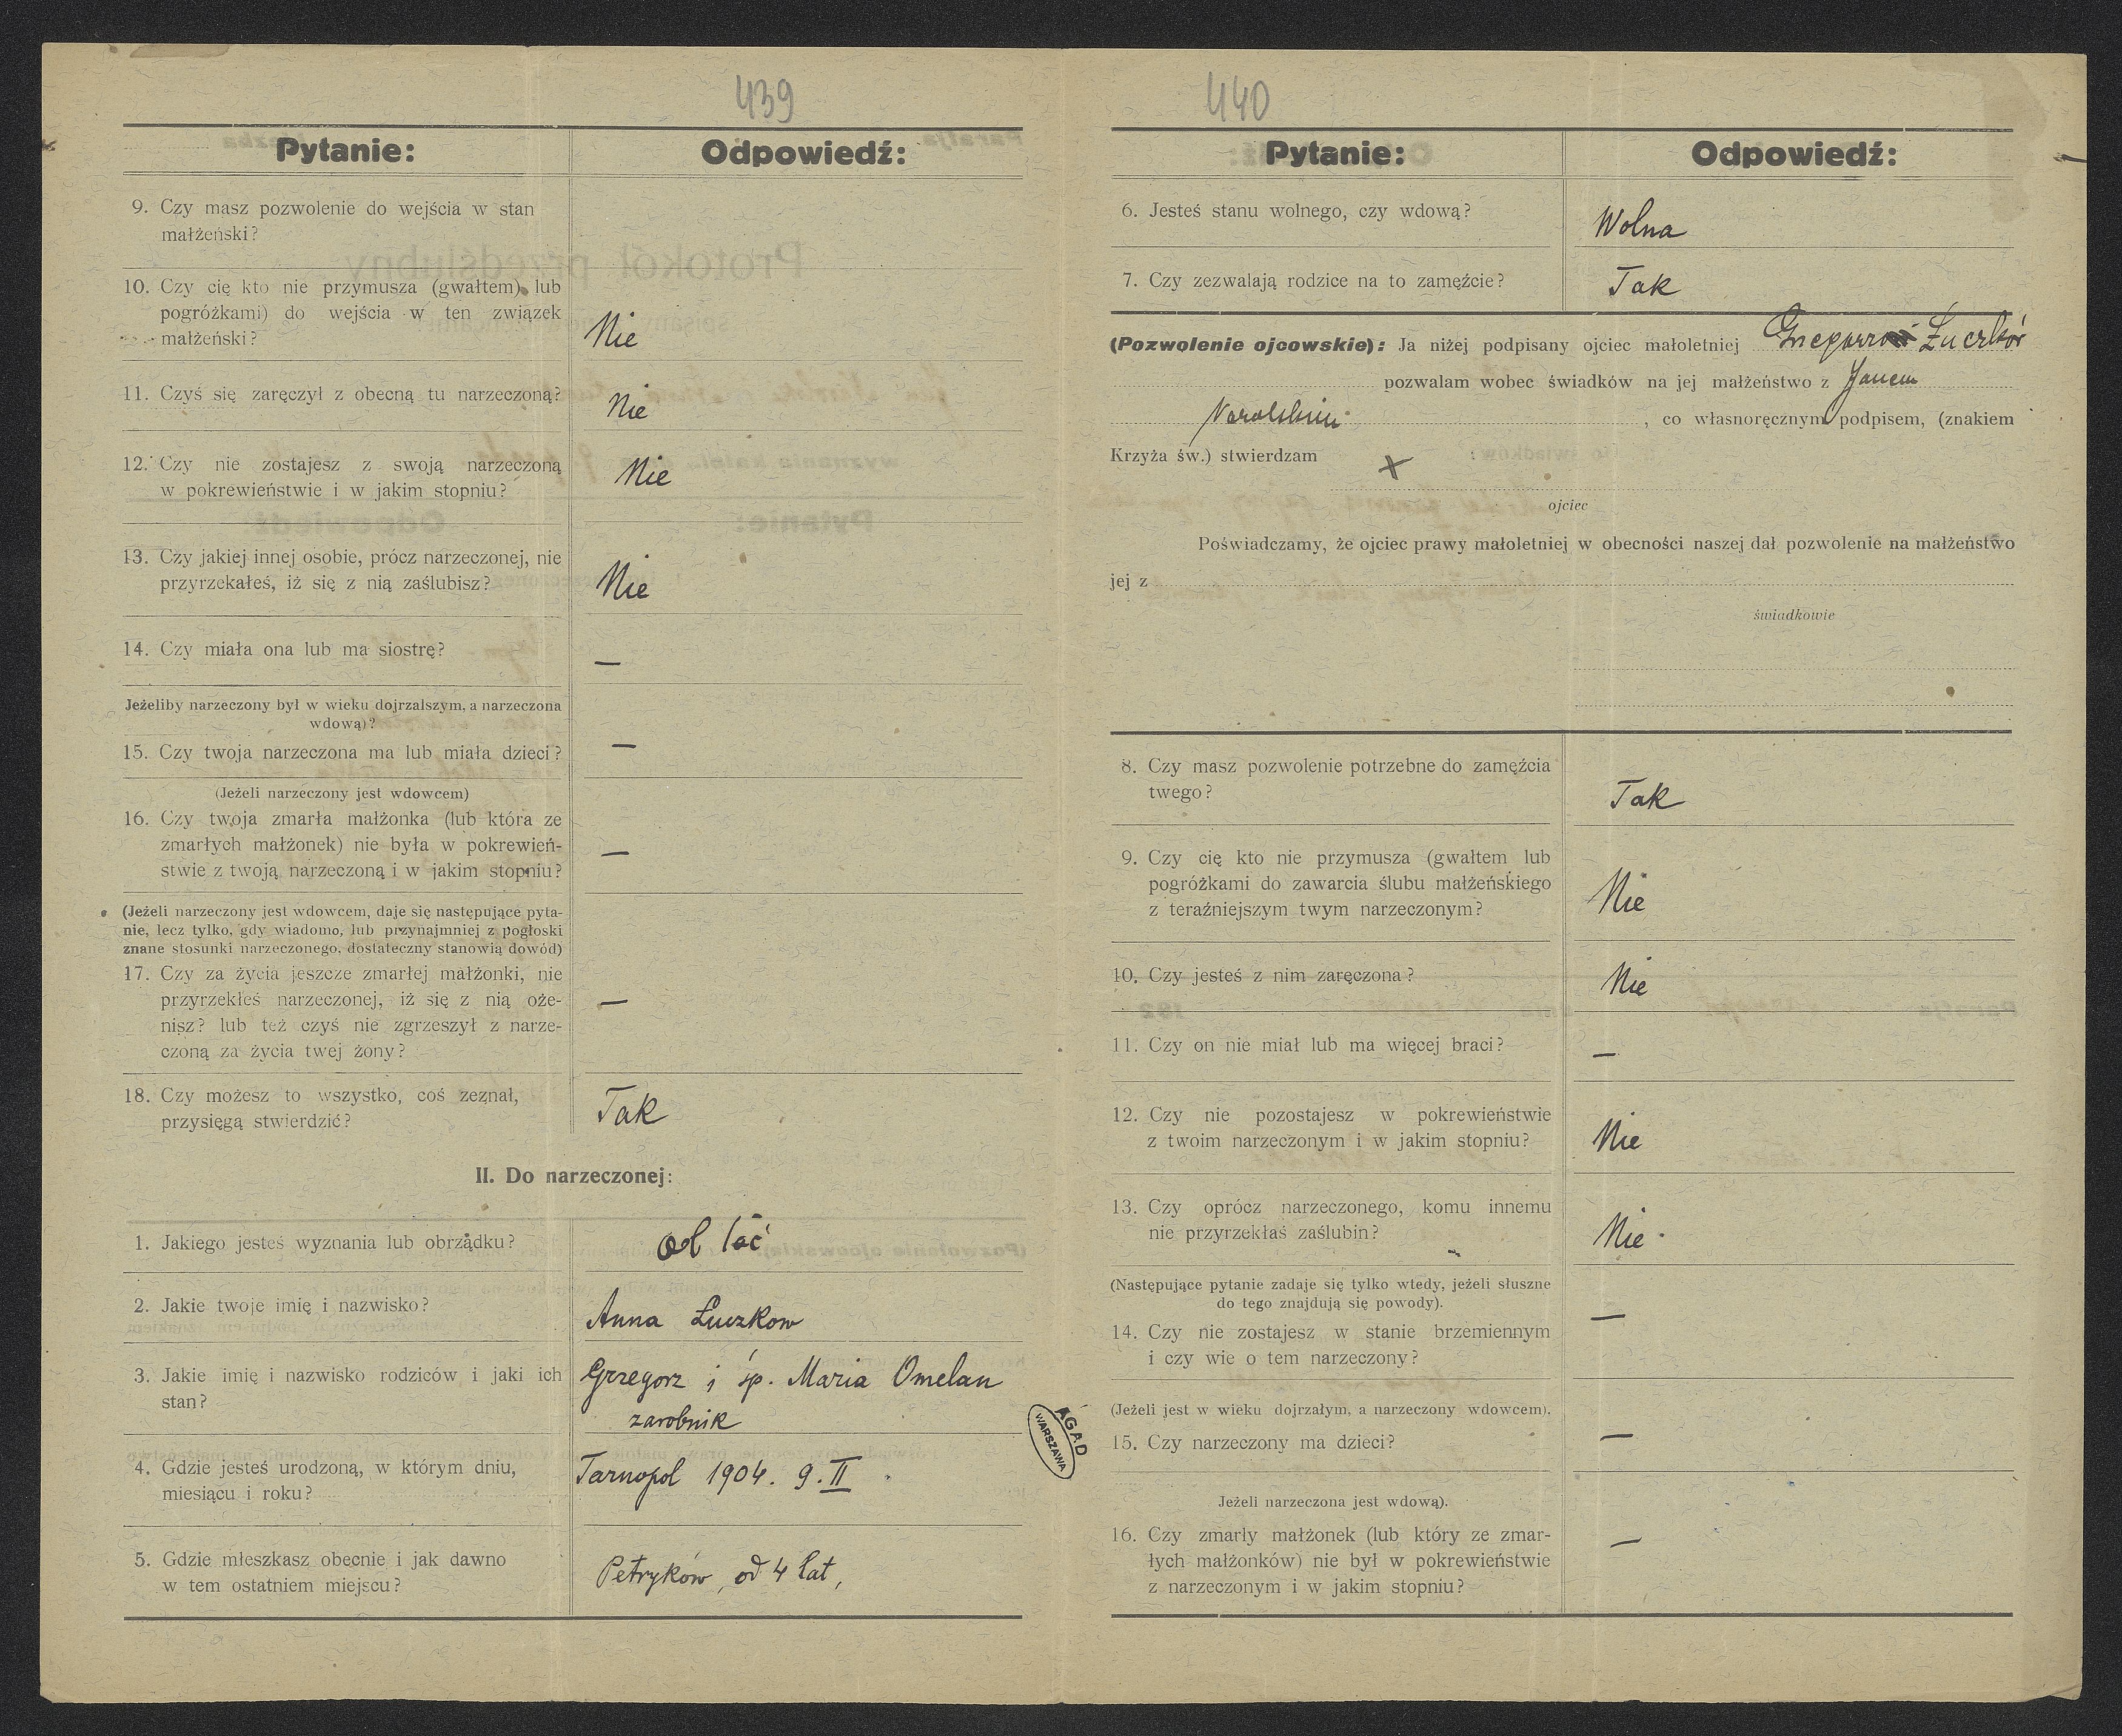 439
Pytanie:
Odpowiedź:
9. Czy masz pozwolenie do wejścia w stan
małżeński?
10. Czy cię kto nie przymusza (gwałtem) lub
pogróżkami) do wejścia w ten związek
małżeński?
Nie
11. Czyś się zaręczył z obecną tu narzeczoną?
Nie
12. Czy nie zostajesz z swoją narzeczoną
w pokrewieństwie i w jakim stopniu?
Nie
13. Czy jakiej innej osobie, prócz narzeczonej, nie
przyrzekałeś, iż się z nią zaślubisz?
Nie
14. Czy miała ona lub ma siostrę?
—
Jeżeliby narzeczony był w wieku dojrzalszym, a narzeczona
wdową)?
15. Czy twoja narzeczona ma lub miała dzieci?
—
(Jeżeli narzeczony jest wdowcem)
16. Czy twoja zmarła małżonka (lub która ze
zmarłych małżonek) nie była w pokrewień-
stwie z twoją narzeczoną i w jakim stopniu?
—
(Jeżeli narzeczony jest wdowcem, daje się następujące pyta-
nie, lecz tylko, gdy wiadomo, lub przynajmniej z pogłoski
znane stosunki narzeczonego, dostateczny stanowią dowód)
17. Czy za życia jeszcze zmarłej małżonki, nie
przyrzekłeś narzeczonej, iż się z nią oże-
nisz? lub też czyś nie zgrzeszył z narze-
czoną za życia twej żony?
—
18. Czy możesz to wszystko, coś zeznał,
przysięgą stwierdzić?
Tak
II. Do narzeczonej:
1. Jakiego jesteś wyznania lub obrządku?
łać
2. Jakie twoje imię i nazwisko?
Anna Łuczkow
3. Jakie imię i nazwisko rodziców i jaki ich
stan?
Grzegorz i śp. Maria Omelan
zarobnik
4. Gdzie jesteś urodzoną, w którym dniu,
miesiącu i roku?
Tarnopol 1904. 9. II
5. Gdzie mieszkasz obecnie i jak dawno
w tem ostatniem miejscu?
Petryków, od 4 lat,
AGAD
WARSZAWA
440
Pytanie:
Odpowiedź:
6. Jesteś stanu wolnego, czy wdową?
Wolna
7. Czy zezwalają rodzice na to zamęźcie?
Tak
(Pozwolenie ojcowskie): Ja niżej podpisany ojciec małoletniej
pozwalam wobec świadków na jej małżeństwo z Janem
, co własnoręcznym podpisem, (znakiem
Krzyża św.) stwierdzam x
ojciec
Poświadczamy, że ojciec prawy małoletniej w obecności naszej dał pozwolenie na małżeństwo
jej z
świadkowie
8. Czy masz pozwolenie potrzebne do zamęźcia
twego?
Tak
9. Czy cię kto nie przymusza (gwałtem lub
pogróżkami do zawarcia ślubu małżeńskiego
z teraźniejszym twym narzeczonym?
Nie
10. Czy jesteś z nim zaręczona?
Nie
11. Czy on nie miał lub ma więcej braci?
—
12. Czy nie pozostajesz w pokrewieństwie
z twoim narzeczonym i w jakim stopniu?
Nie
13. Czy oprócz narzeczonego, komu innemu
nie przyrzekłaś zaślubin?
Nie
(Następujące pytanie zadaje się tylko wtedy, jeżeli słuszne
do tego znajdują się powody).
14. Czy nie zostajesz w stanie brzemiennym
i czy wie o tem narzeczony?
—
(Jeżeli jest w wieku dojrzałym, a narzeczony wdowcem).
15. Czy narzeczony ma dzieci?
—
Jeżeli narzeczona jest wdową).
16. Czy zmarły małżonek (lub który ze zmar-
łych małżonków) nie był w pokrewieństwie
z narzeczonym i w jakim stopniu?
—